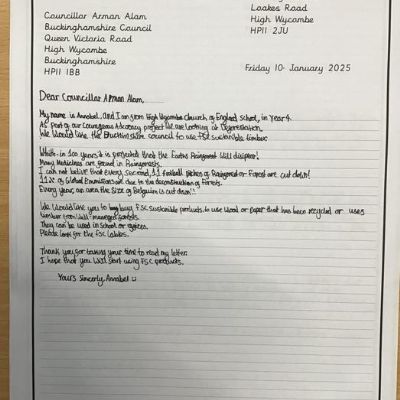 Loakes Road
High Wycombe
HP11 2JU
Councillor Arman Alam
Buckinghamshire Council
Queen Victoria Road
High Wycombe
Buckinghamshire
HP11 1BB
Friday 10th January 2025
Dear Councillor Arman Alam,
My name is Annabel, and I am from High Wycombe Church of England school, in year 4.
As part of our Courageous Advocacy project we are learning about Deforestation.
We would like the Buckinghamshire council to use FSC sustainable timber.
With-in 100 years it is projected that the Earths Rainforest will disappear!
Many Medicines are found in Rainforests.
I can not belive that every second, 1.5 football pitches of Rainforest or Forest are cut down!
11% of Global Emmissions are due to the deconstruction of forests.
Every year, an area the size of Belguim is cut down!
We would like you to buy FSC sustainable products, to use wood or paper that has been recycled or uses
timber from well-managed forests.
They can be used in school or offices.
Please look for the FSC labels.
Thank you for taking your time to read my letter.
I hope that you will start using FSC products.
Yours sincerly, Annabel